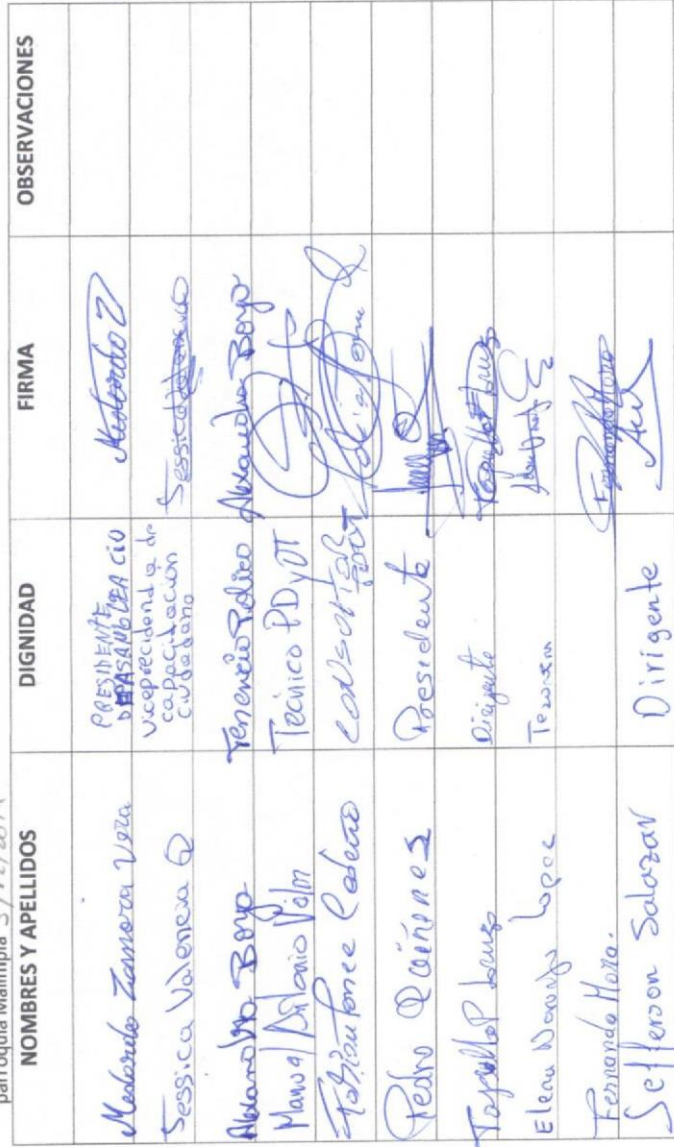 parroquia Malimpia
NOMBRES Y APELLIDOS DIGNIDAD FIRMA OBSERVACIONES
Medardo Zamora Vera PRESIDENTE DE ASAMBLEA CIU Medardo Z
Sessica Valencia Q vicepresidenda de capacidación ciudadano Sessica Valencia
Alexandra Borja Tenencia Politico Alexandra Borja
Manuel Antonio Técnico PDyOT
Fabian Ponce Cedeño CONSULTOR PDOT
Pedro Quiñones Presidente
Lauzo Dirigente
Elena Naranjo Lopez
Fernando Mora. Fernando Mora
Sefferson Salazar Dirigente